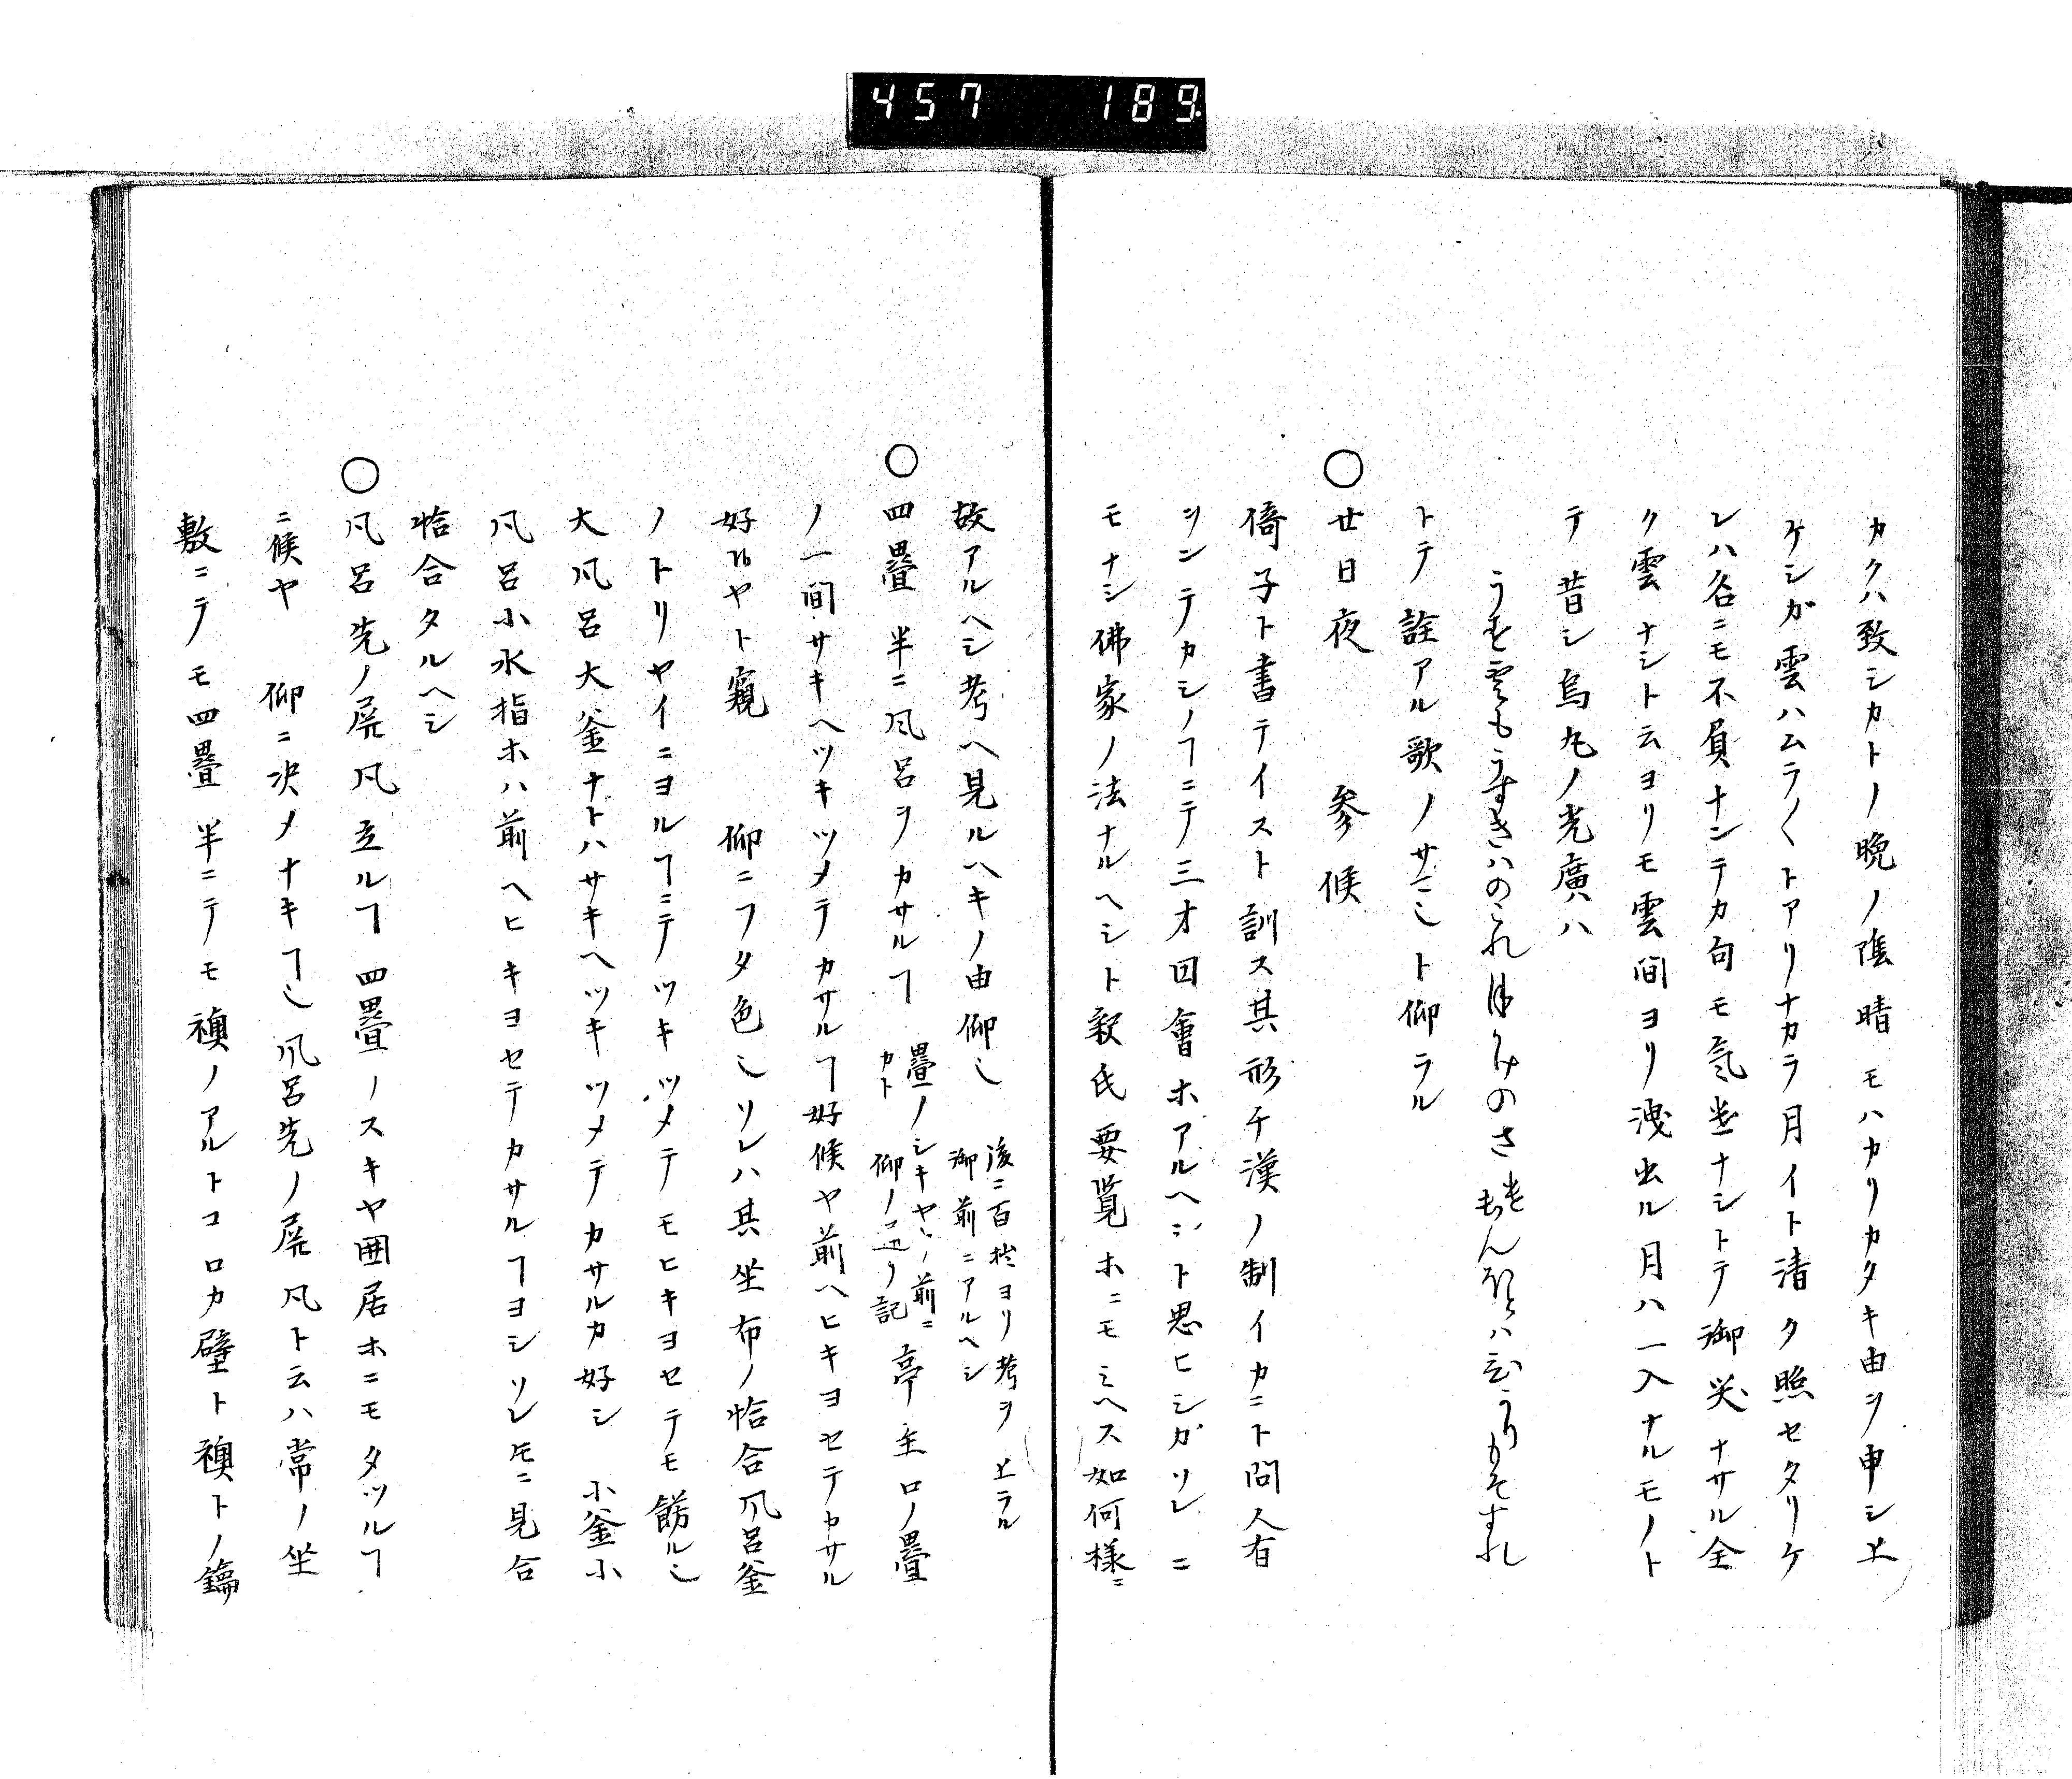 457 189
カクハ致シカトノ晩ノ陰晴モハカリカタキ由ヲ申シ上
ケシガ雲ハムラ〱トアリナカラ月イト清ク照セタリケ
レハ各ニモ不負ナンテカ句モ気ナシトテ御笑ナサル全
ク雲ナシト云ヨリモ雲間ヨリ洩出ル月ハ一入ナルモノト
テ昔シ烏丸ノ光廣ハ
トテ詮アル歌ノサマ乄ト仰ラル
○廿日夜 参候
倚子ト書テイスト訓ス其形チ漢ノ制イカニト問人有
シンテカシノヿニテ三才図會ホアルヘシト思ヒシガソレニ
モナシ佛家ノ法ナルヘシト釈氏要覧ホニモミヘス如何様ニ
故アルヘシ考ヘ見ルヘキノ由仰乄 後ニ百拙ヨリ考ヲ上ラル
御前ニアルヘシ
○四疊半ニ風呂ヲカサルヿ 疊ノシキヤウノ前ニ
カト 仰ノ通リ記 亭主口ノ疊
ノ一間サキヘツキツメテカサルヿ好候ヤ前ヘヒキヨセテカサル
好候ヤト窺 仰ニフタ色乄ソレハ其坐布ノ恰合風呂釜
ノトリヤイニヨルヿニテツキツメテモヒキヨセテモ餝ル乄
大風呂大釜ナトハサキヘツキツメテカサルカ好シ 小釜小
風呂小水指ホハ前ヘヒキヨセテカサルヿヨシソレトモニ見合
恰合タルヘシ
○風呂先ノ屏風立ルヿ四疊ノスキヤ囲居ホニモタツルヿ
ニ候ヤ 仰ニ決メナキヿ乄風呂先ノ屏風ト云ハ常ノ坐
敷ニテモ四疊半ニテモ襖ノアルトコロカ壁ト襖トノ